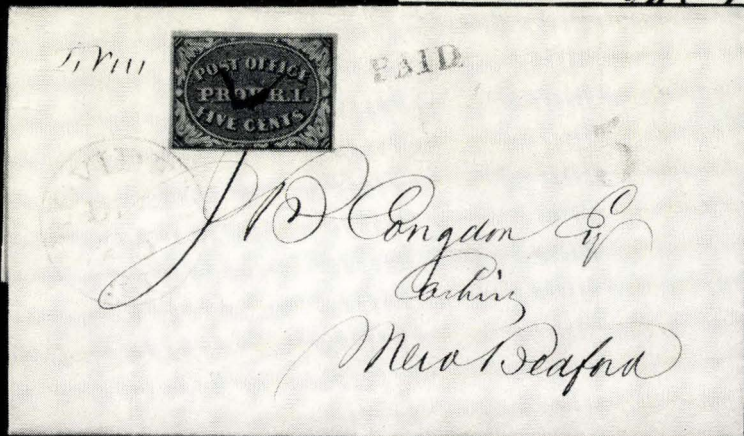 PAID
POST OFFICE
PROV. R.I.
FIVE CENTS
5
J B Congdon Esq
Cashier
New Bedford